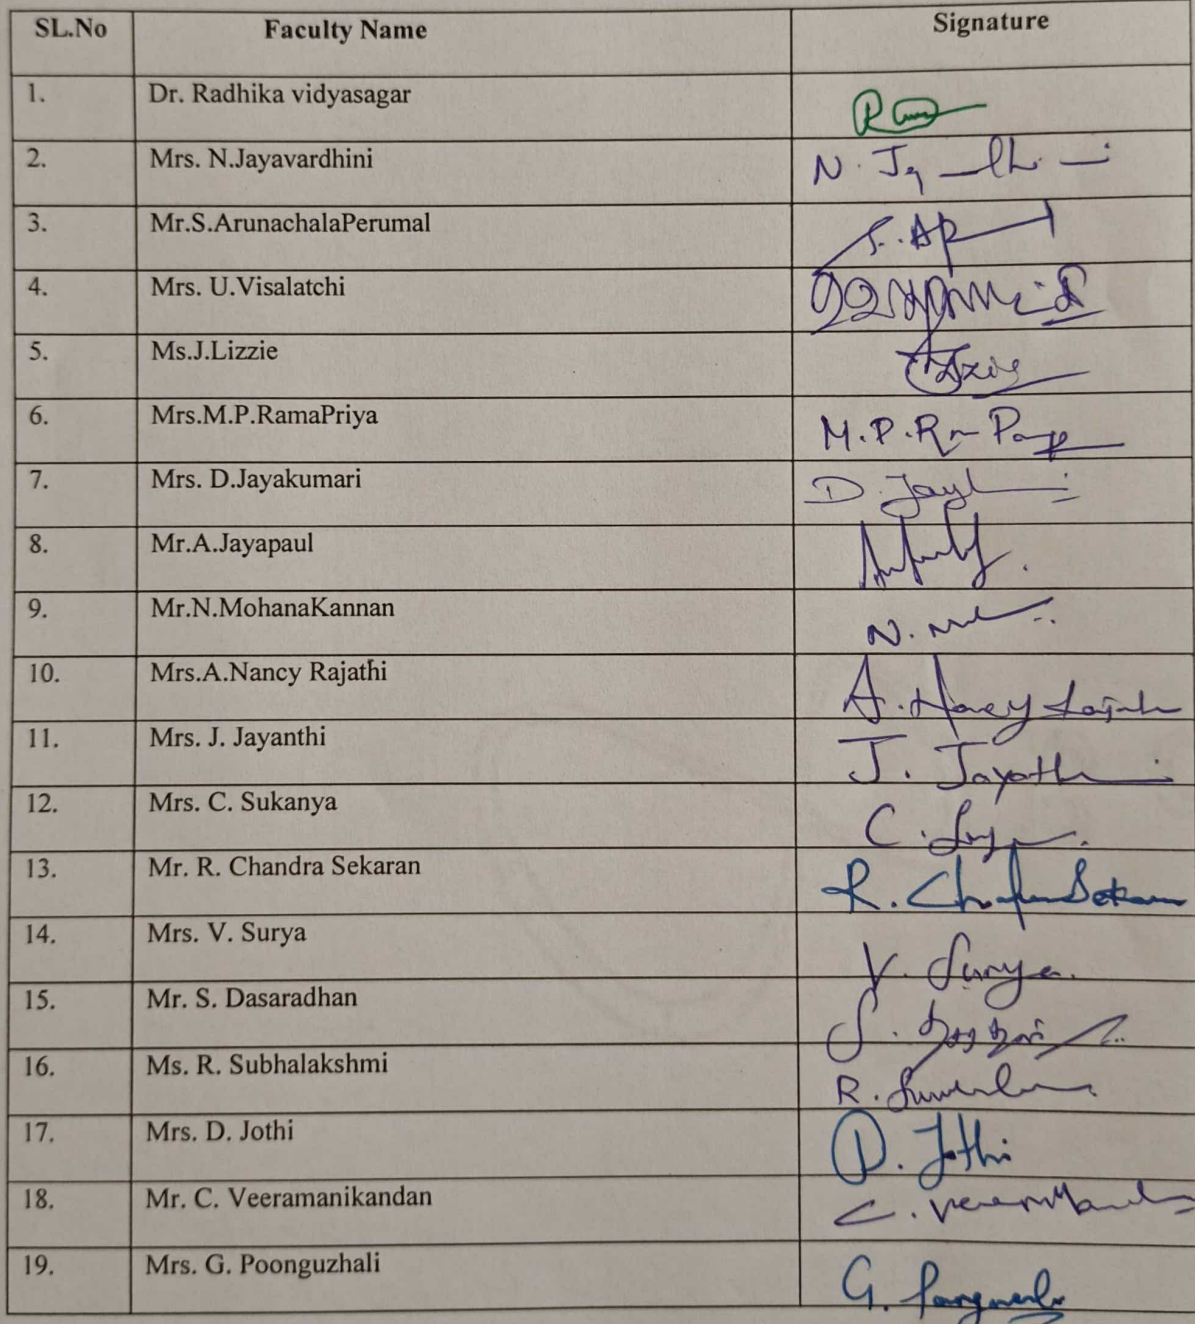 SL.No Faculty Name Signature
1. Dr. Radhika vidyasagar
2. Mrs. N.Jayavardhini N.
3. Mr.S.ArunachalaPerumal
4. Mrs. U.Visalatchi
5. Ms.J.Lizzie
6. Mrs.M.P.RamaPriya M.P.
7. Mrs. D.Jayakumari D.
8. Mr.A.Jayapaul
9. Mr.N.MohanaKannan N.
10. Mrs.A.Nancy Rajathi A.
11. Mrs. J. Jayanthi J.
12. Mrs. C. Sukanya C.
13. Mr. R. Chandra Sekaran R.
14. Mrs. V. Surya V. Surya.
15. Mr. S. Dasaradhan S.
16. Ms. R. Subhalakshmi R.
17. Mrs. D. Jothi D. Jothi
18. Mr. C. Veeramanikandan C.
19. Mrs. G. Poonguzhali G.